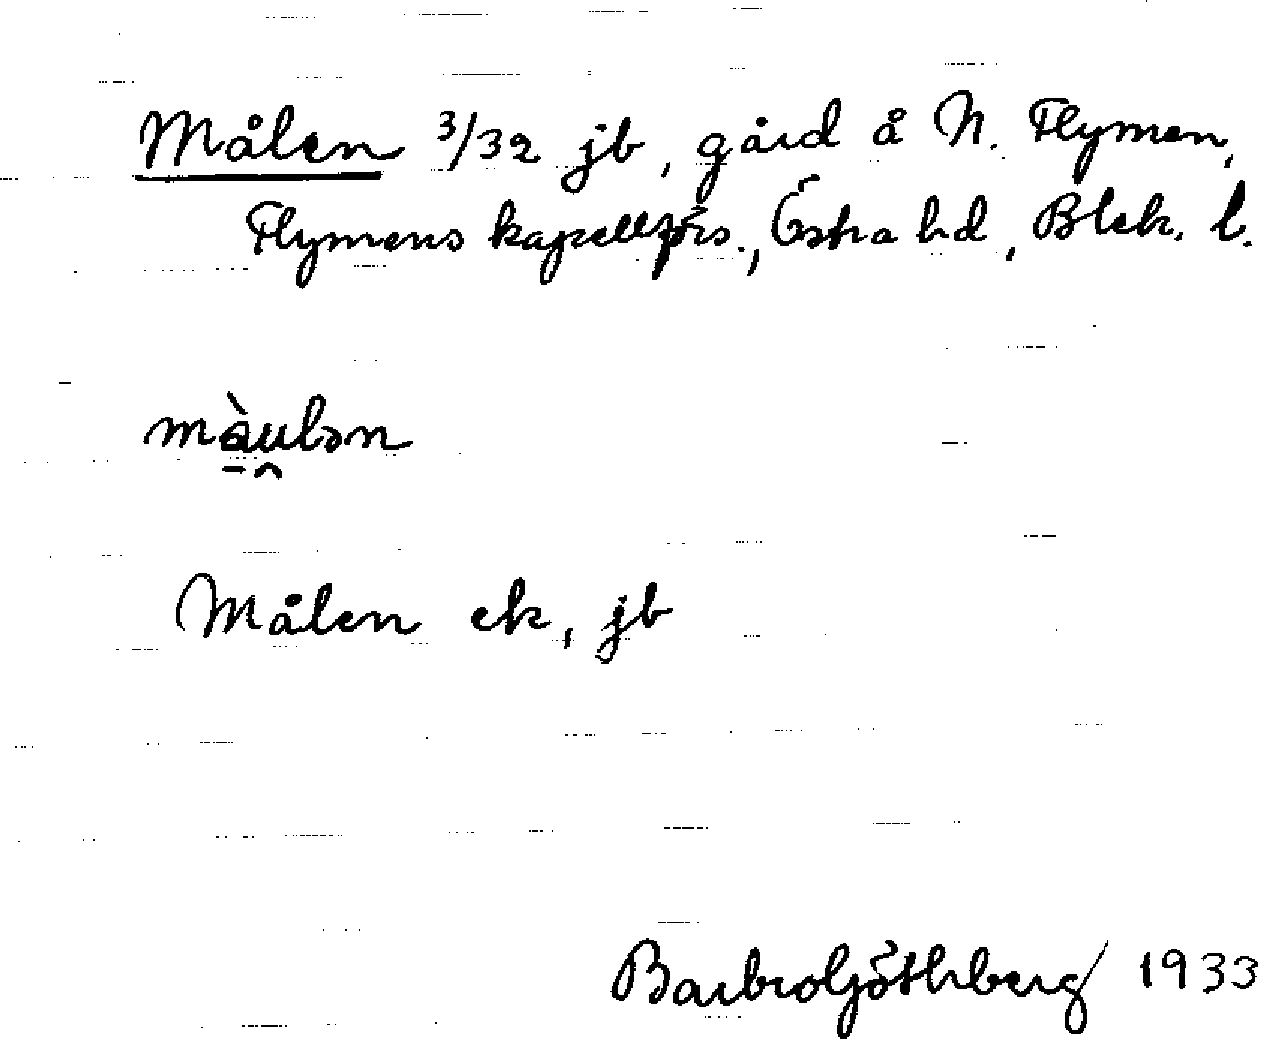 Målen 3/32 jb, gård å N. Flymen,
Flymens kapellförs., Östra hd, Blek. l.
màu̯lən
Målen ek, jb
Barbro Göthberg 1933